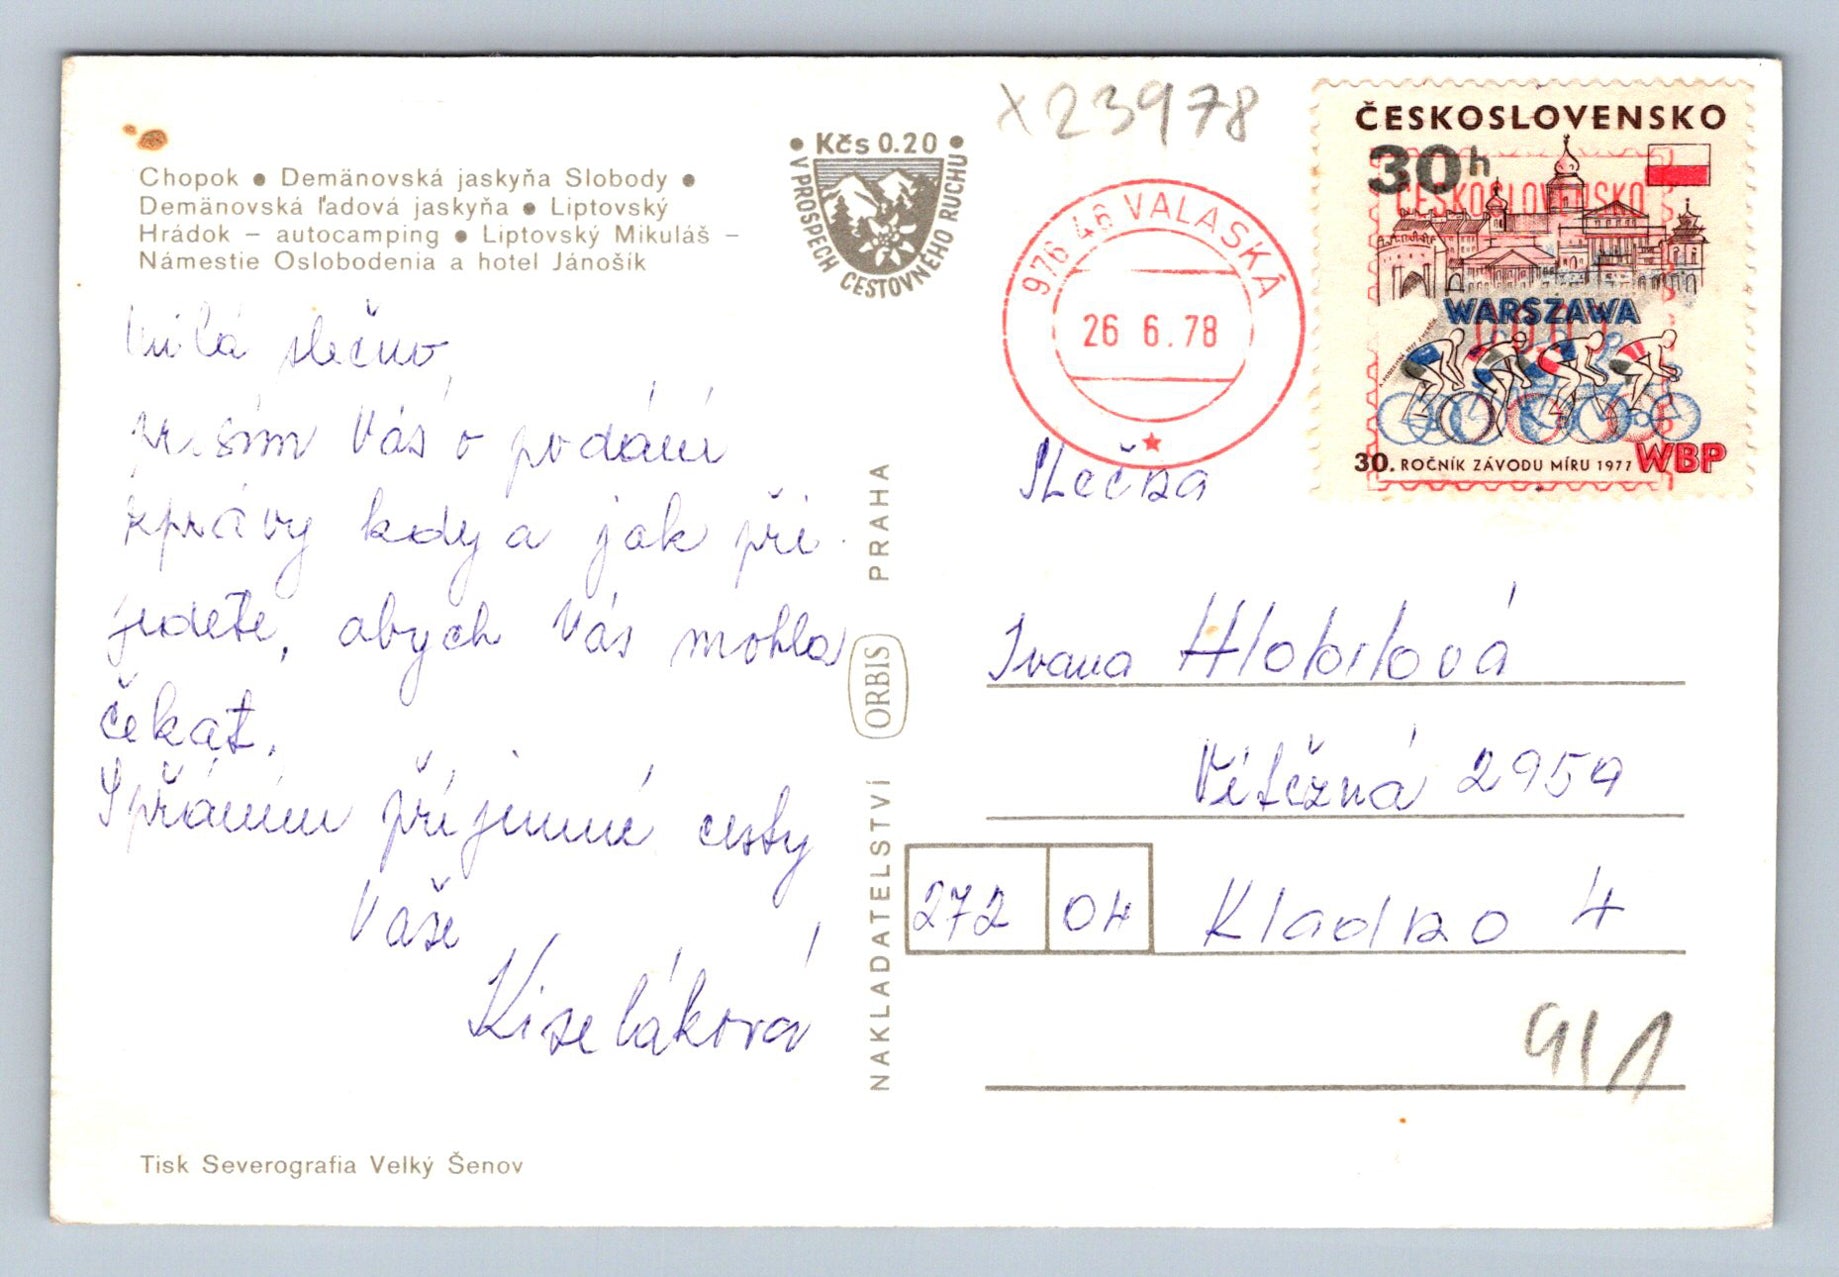 Chopok ● Demänovská jaskyňa Slobody ●
Demänovská ľadová jaskyňa ● Liptovský
Hrádok – autocamping ● Liptovský Mikuláš –
Námestie Oslobodenia a hotel Jánošík
● Kčs 0.20 ●
V PROSPECH CESTOVNÉHO RUCHU
X23978
976 46 VALASKÁ
26 6.78
ČESKOSLOVENSKO
30h
ČESKOSLOVENSKO
WARSZAWA
30. ROČNÍK ZÁVODU MÍRU 1977 WBP
Milá slečno,
prosím Vás o podání
zprávy kdy a jak při-
jedete, abych Vás mohla
čekat.
S přáním příjemné cesty
Vaše
Kiseláková
NAKLADATELSTVÍ ORBIS PRAHA
Slečna
Ivana Hlobilová
Vítězná 2959
272 04 Kladno 4
911
Tisk Severografia Velký Šenov